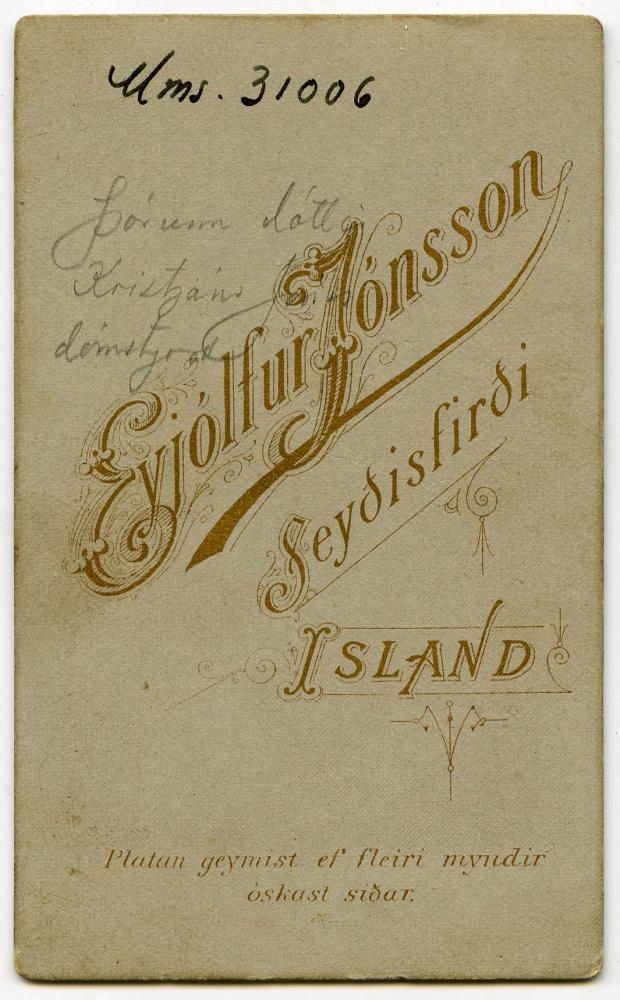 Mms. 31006
Þórunn dóttir
Kristjáns Jóns
dómstjóra
Eyjólfur Jónsson
Seyðisfirði
ISLAND
Platan geymist ef fleiri myndir
óskast siðar.